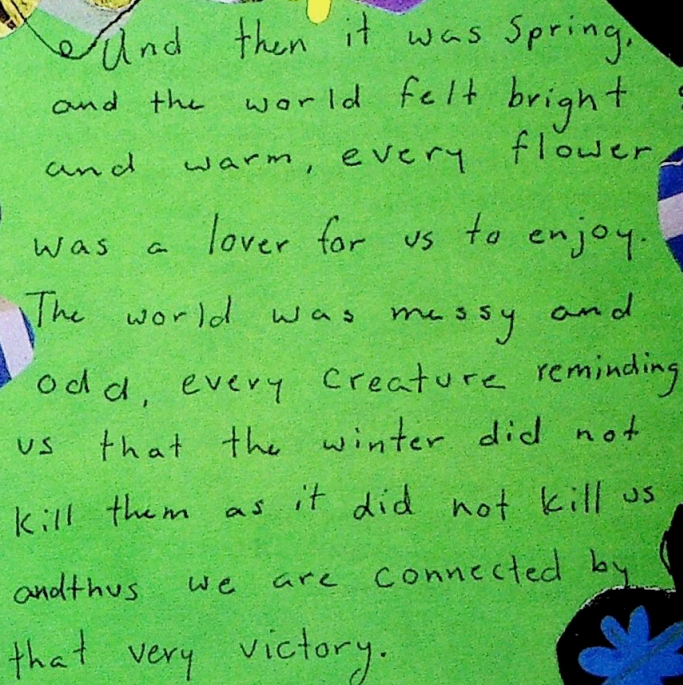 Und then it was Spring,
and the world felt bright
and warm, every flower
was a lover for us to enjoy.
The world was messy and
odd, every creature reminding
us that the winter did not
kill them as it did not kill us
andthus we are connected by
that very victory.